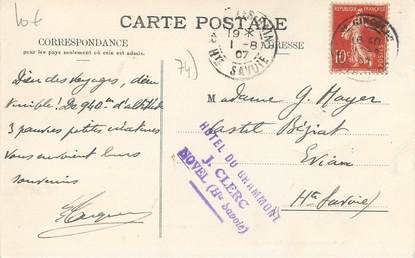 10€
CARTE POSTALE
CORRESPONDANCE
pour les pays seulement où cela est admis.
ADRESSE
19 *
1 - 8
07
HTE SAVOIE
ST GINGOLPH
RÉPUBLIQUE FRANÇAISE
10c
74)
Dieu des voyages, dieu
Terrible! De 940m d'altitude
3 pauvres petites créatures
Vous envoient leurs
souvenirs
M
Madame G. Mayer
Castel Béziat
Evian
Hte Savoie
HÔTEL DU GRAMMONT
J. CLERC
NOVEL (Hte Savoie)